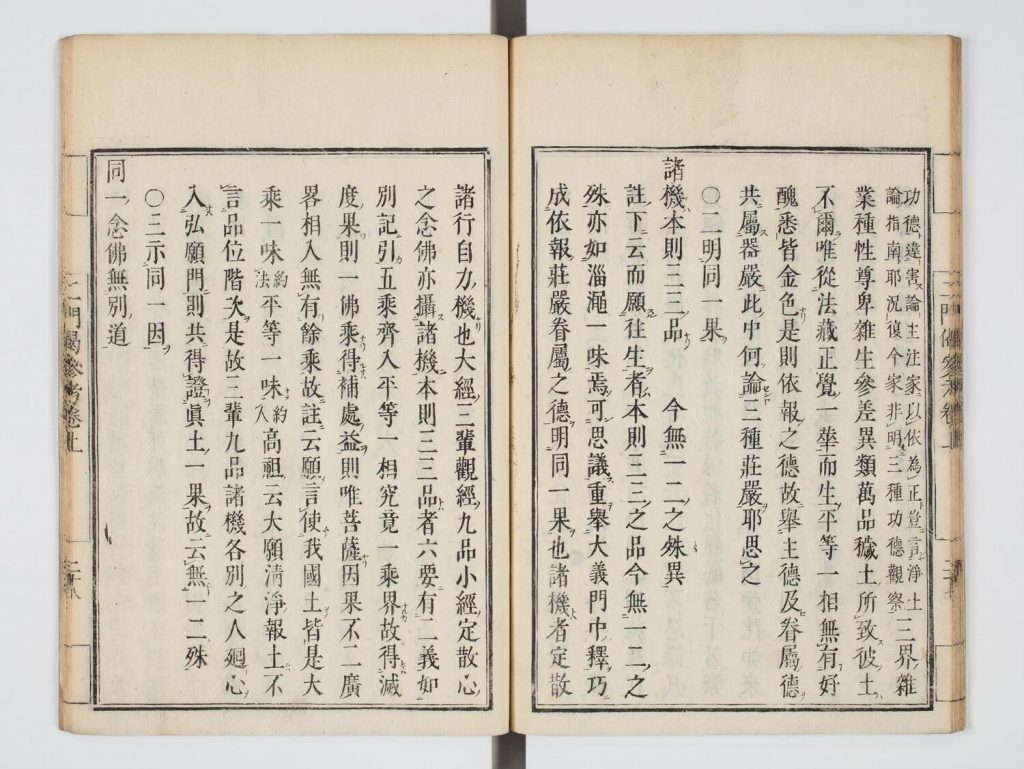 功德違害論主注家以依為正豈言淨土
論指南耶況復今家非明三種功德觀察三界雜
業種性尊卑雜生參差異類萬品穢土所致彼土
不爾唯從法藏正覺一華而生平等一相無有好
醜悉皆金色是則依報之德故舉主德及眷屬德
共屬器嚴此中何論三種莊嚴耶思之
〇二明同一果
諸機本則三三品　今無一二之殊異
註下云而願往生者本則三三之品今無一二之
殊亦如淄澠一味焉可思議重舉大義門中釋巧
成依報莊嚴眷屬之德明同一果也諸機者定散
諸行自力機也大經三輩觀經九品小經定散心
之念佛亦攝諸機本則三三品者六要有二義如
別記引五乘齊入平等一相究竟一乘界故得滅
度果則一佛乘得補處益則唯菩薩因果不二廣
畧相入無有餘乘故註云願言使我國土皆是大
乘一味約法平等一味約入高祖云大願清淨報土不
言品位階次是故三輩九品諸機各別之人廻心
入弘願門則共得證眞土一果故云無一二殊
〇三示同一因
同一念佛無別道
二門偈參考卷上